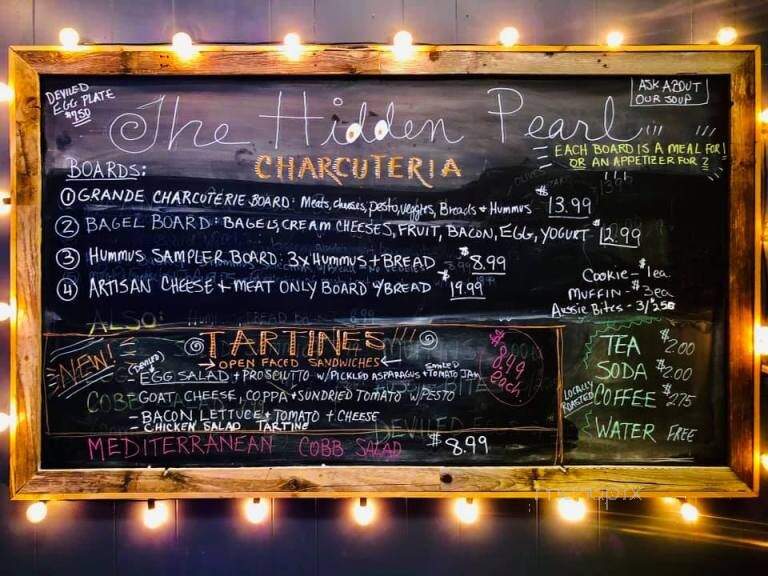 DEVILED
EGG PLATE
$7.50
The Hidden Pearl
ASK ABOUT
OUR SOUP
CHARCUTERIA
EACH BOARD IS A MEAL FOR 1
OR AN APPETIZER FOR 2
BOARDS:
① GRANDE CHARCUTERIE BOARD: Meats, cheeses, pesto, veggies, Breads + Hummus $13.99
② BAGEL BOARD: BAGELS, CREAM CHEESES, FRUIT, BACON, EGG, YOGURT $12.99
③ HUMMUS SAMPLER BOARD: 3X HUMMUS + BREAD $8.99
④ ARTISAN CHEESE + MEAT ONLY BOARD W/BREAD $19.99
COOKIE - $1ea.
MUFFIN - $3ea
AUSSIE BITES - 3/$2.50
ALSO:
NEW!
TARTINES!!!
→ OPEN FACED SANDWICHES ←
(DEVILED)
- EGG SALAD + PROSCIUTTO W/ PICKLED ASPARAGUS + TOMATO JAM
- GOAT CHEESE, COPPA + SUNDRIED TOMATO W/ PESTO
- BACON LETTUCE + TOMATO + CHEESE
- CHICKEN SALAD TARTINE
$8.49
each.
MEDITERRANEAN COBB SALAD $8.99
TEA $2.00
SODA $2.00
LOCALLY
ROASTED
COFFEE $2.75
WATER FREE
DEVILED